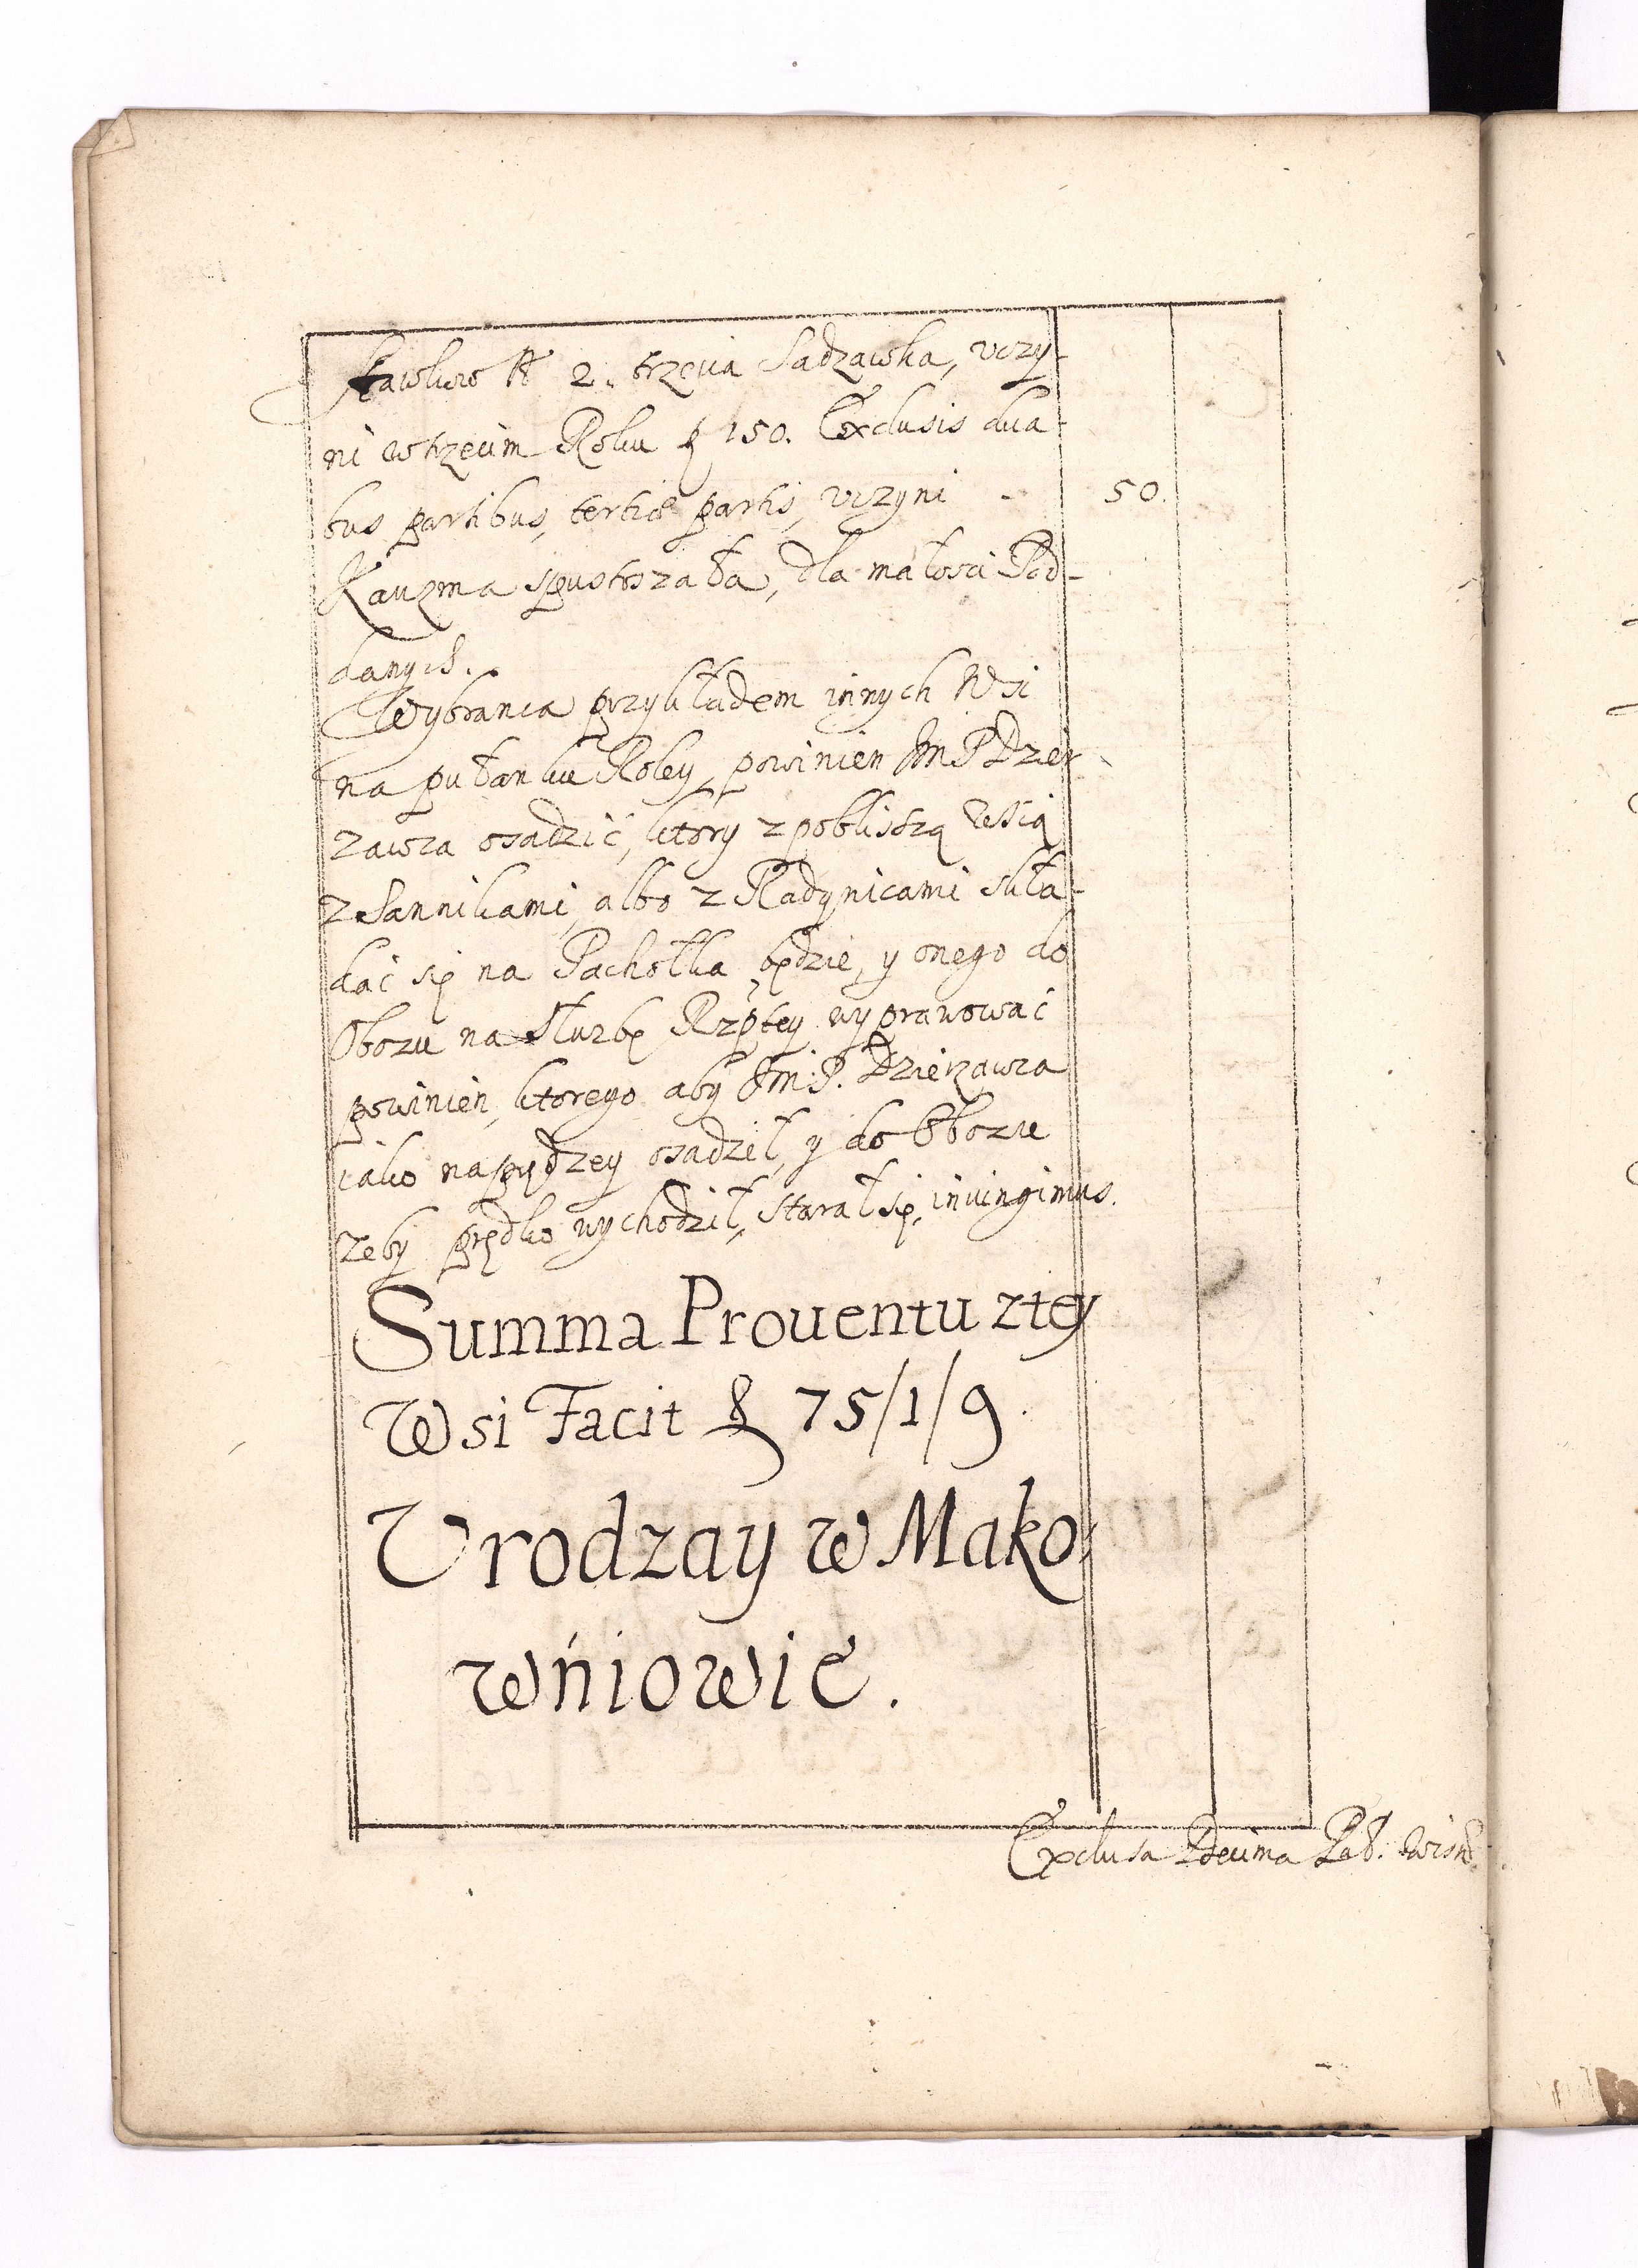 Stawkow N 2. trzecia Sadzawka, vczy-
ni wtrzecim Roku f 150. Exclusis dua-
bus partibus, tertia partis, vczyni - 50.
Karczma spustoszała, dla małosci Pod-
danych.
Wybranca przykładem innych Wsi
na pułanku Roley, powinien JmP Dzier-
zawca osadzić, ktory z pobliszą wsią
z Sannikami, albo z Radynicami skła-
dać się na Pachołka będzie, y onego do
Obozu na słuzbę Rzptey wyprawować
powinien, ktorego aby JmP. Dzierzawca
iako napędzey osadził, y do Obozu
zeby prędko wychodził, starał się, iniungimus.
Summa Prouentu ztey
Wsi Facit f 75/1/9.
Vrodzay w Mako,
wńiowie.
Exclusa Decima